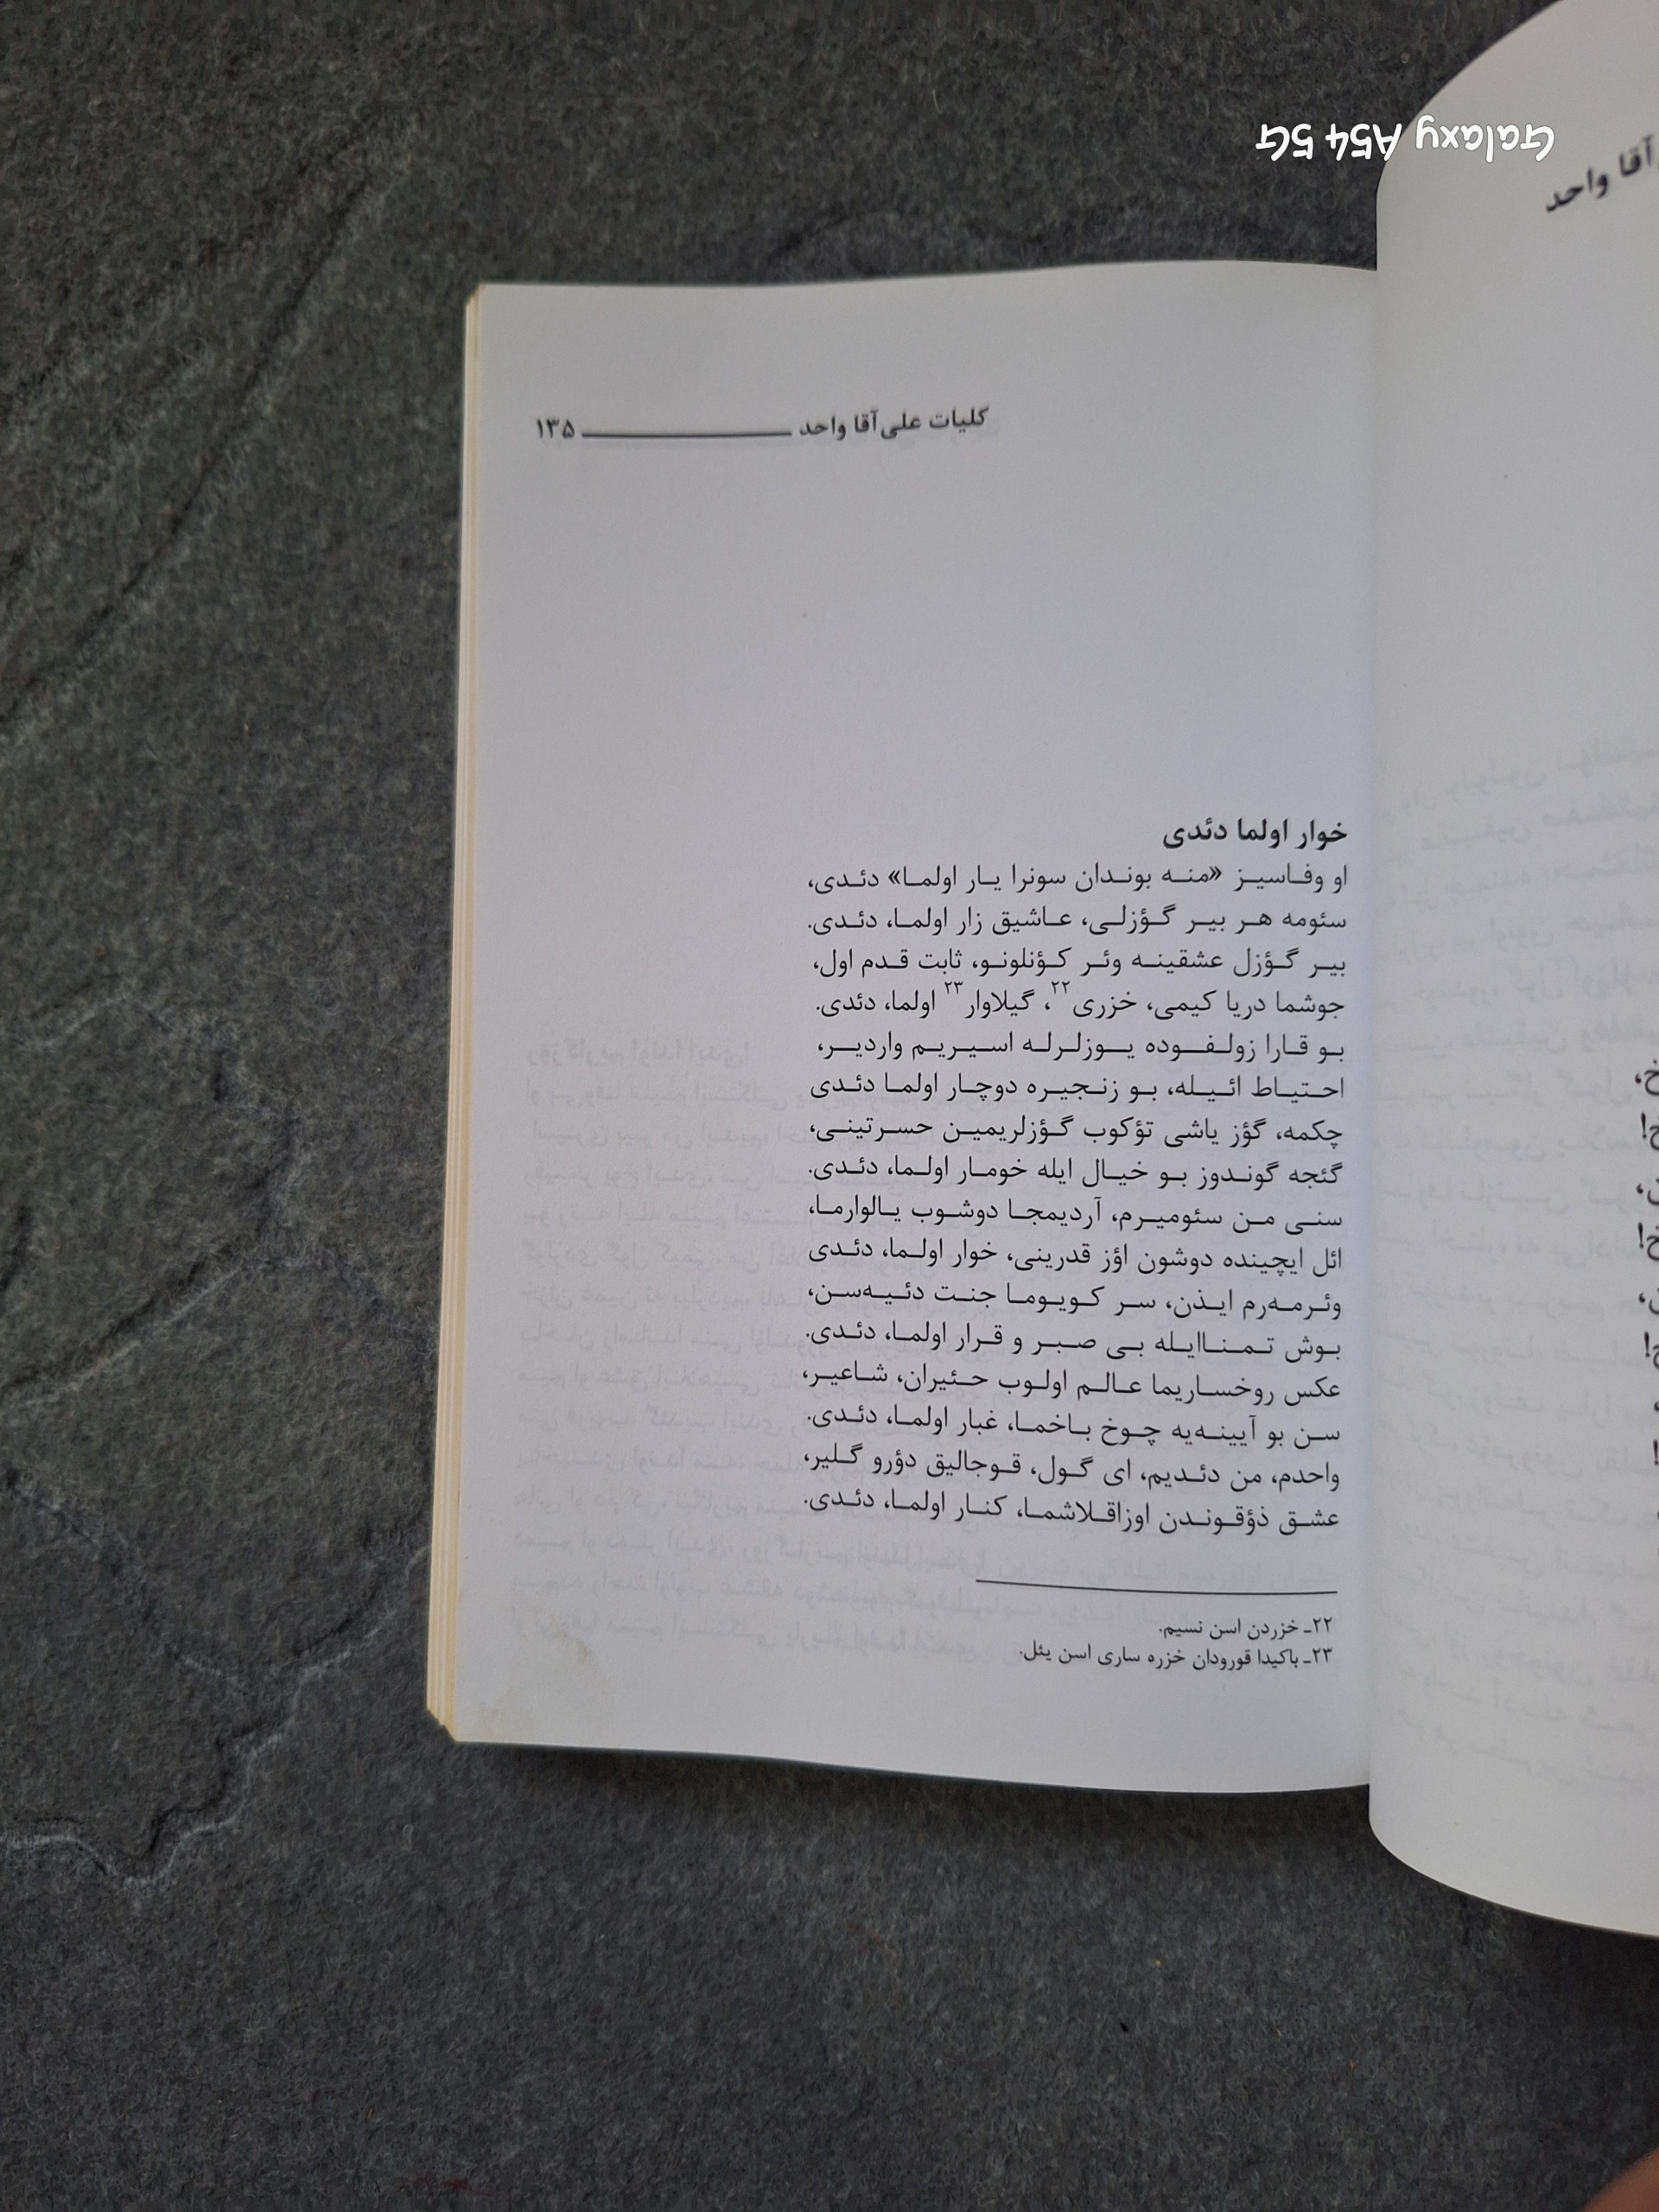 Galaxy A54 5G
آقا واحد
کلیات علی‌آقا واحد ـــــــــــــــــ ۱۳۵
خوار اولما دئدی
او وفـاسیـز «منـه بونـدان سونرا یـار اولمـا» دئـدی،
سئومه هـر بیـر گـؤزلـی، عـاشیق زار اولمـا، دئـدی.
بیـر گـؤزل عشقینـه وئـر کـؤنلونـو، ثابت قـدم اول،
جوشما دریا کیمی، خزری۲۲، گیلاوار۲۳ اولما، دئدی.
بـو قـارا زولـفـوده یـوزلـرلـه اسـیـریـم واردیـر،
احـتیـاط ائـیـله، بـو زنـجیـره دوچـار اولمـا دئـدی
چکمه، گؤز یاشی تؤکوب گـؤزلریمیـن حسـرتینـی،
گئجه گونـدوز بـو خیـال ایله خومـار اولـمـا، دئـدی.
سنـی مـن سئومیـرم، آردیمجـا دوشـوب یـالوارمـا،
ائل ایچینده دوشون اؤز قدرینی، خوار اولـمـا، دئـدی
وئـرمـه‌رم ایـذن، سـر کـویـومـا جنـت دئـیـه‌سـن،
بـوش تـمـنـاایـله بـی صـبـر و قـرار اولمـا، دئـدی.
عکس روخسـاریما عـالـم اولـوب حـئیران، شـاعیـر،
سـن بو آیینـه‌یه چـوخ بـاخمـا، غبار اولمـا، دئـدی.
واحدم، من دئـدیم، ای گـول، قـوجالیق دؤرو گـلیر،
عشـق ذؤقـونـدن اوزاقـلاشمـا، کنـار اولمـا، دئـدی.
۲۲ـ خزردن اسن نسیم.
۲۳ـ باکیدا قورودان خزره ساری اسن یئل.